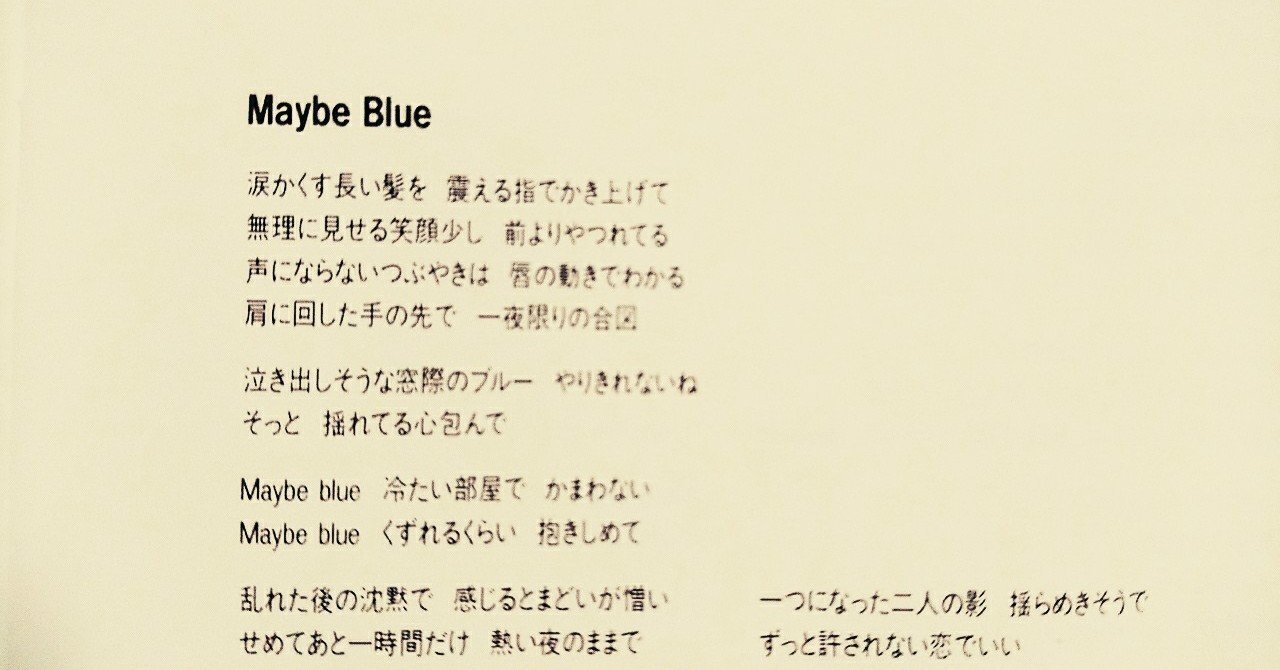 Maybe Blue
涙かくす長い髪を 震える指でかき上げて
無理に見せる笑顔少し 前よりやつれてる
声にならないつぶやきは 唇の動きでわかる
肩に回した手の先で 一夜限りの合図
泣き出しそうな窓際のブルー やりきれないね
そっと 揺れてる心包んで
Maybe blue 冷たい部屋で かまわない
Maybe blue くずれるくらい 抱きしめて
乱れた後の沈黙で 感じるとまどいが憎い
せめてあと一時間だけ 熱い夜のままで
一つになった二人の影 揺らめきそうで
ずっと許されない恋でいい